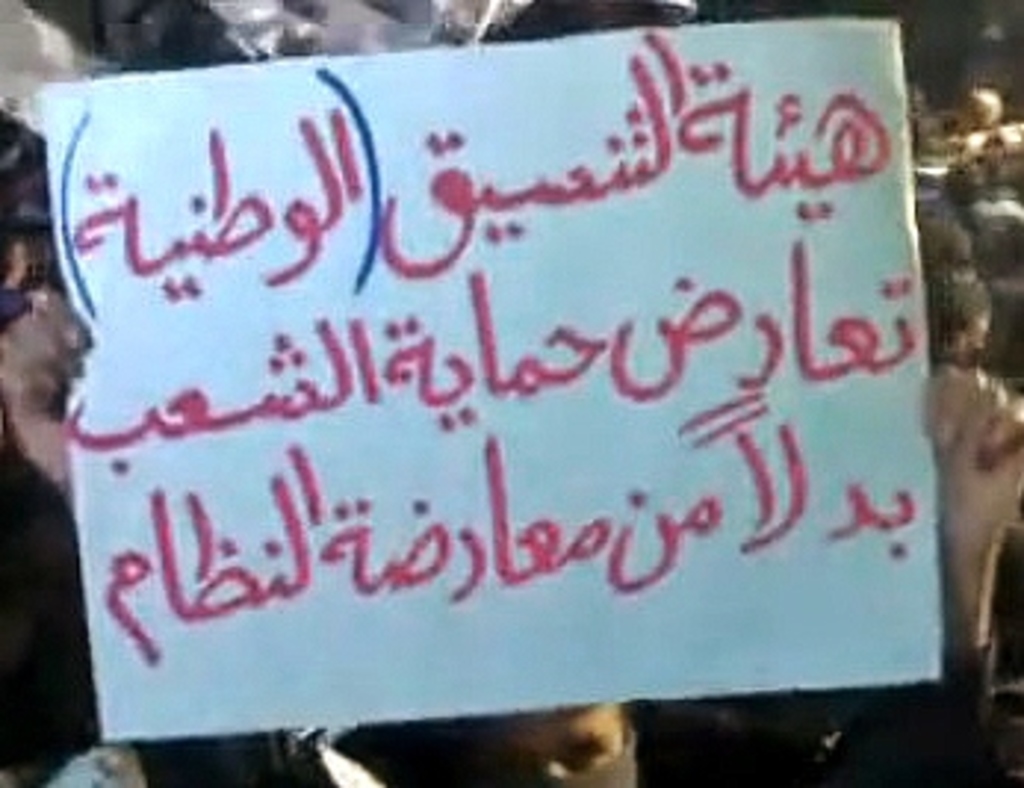 هيئة التنسيق (الوطنية)
تعارض حماية الشعب
بدلاً من معارضة النظام